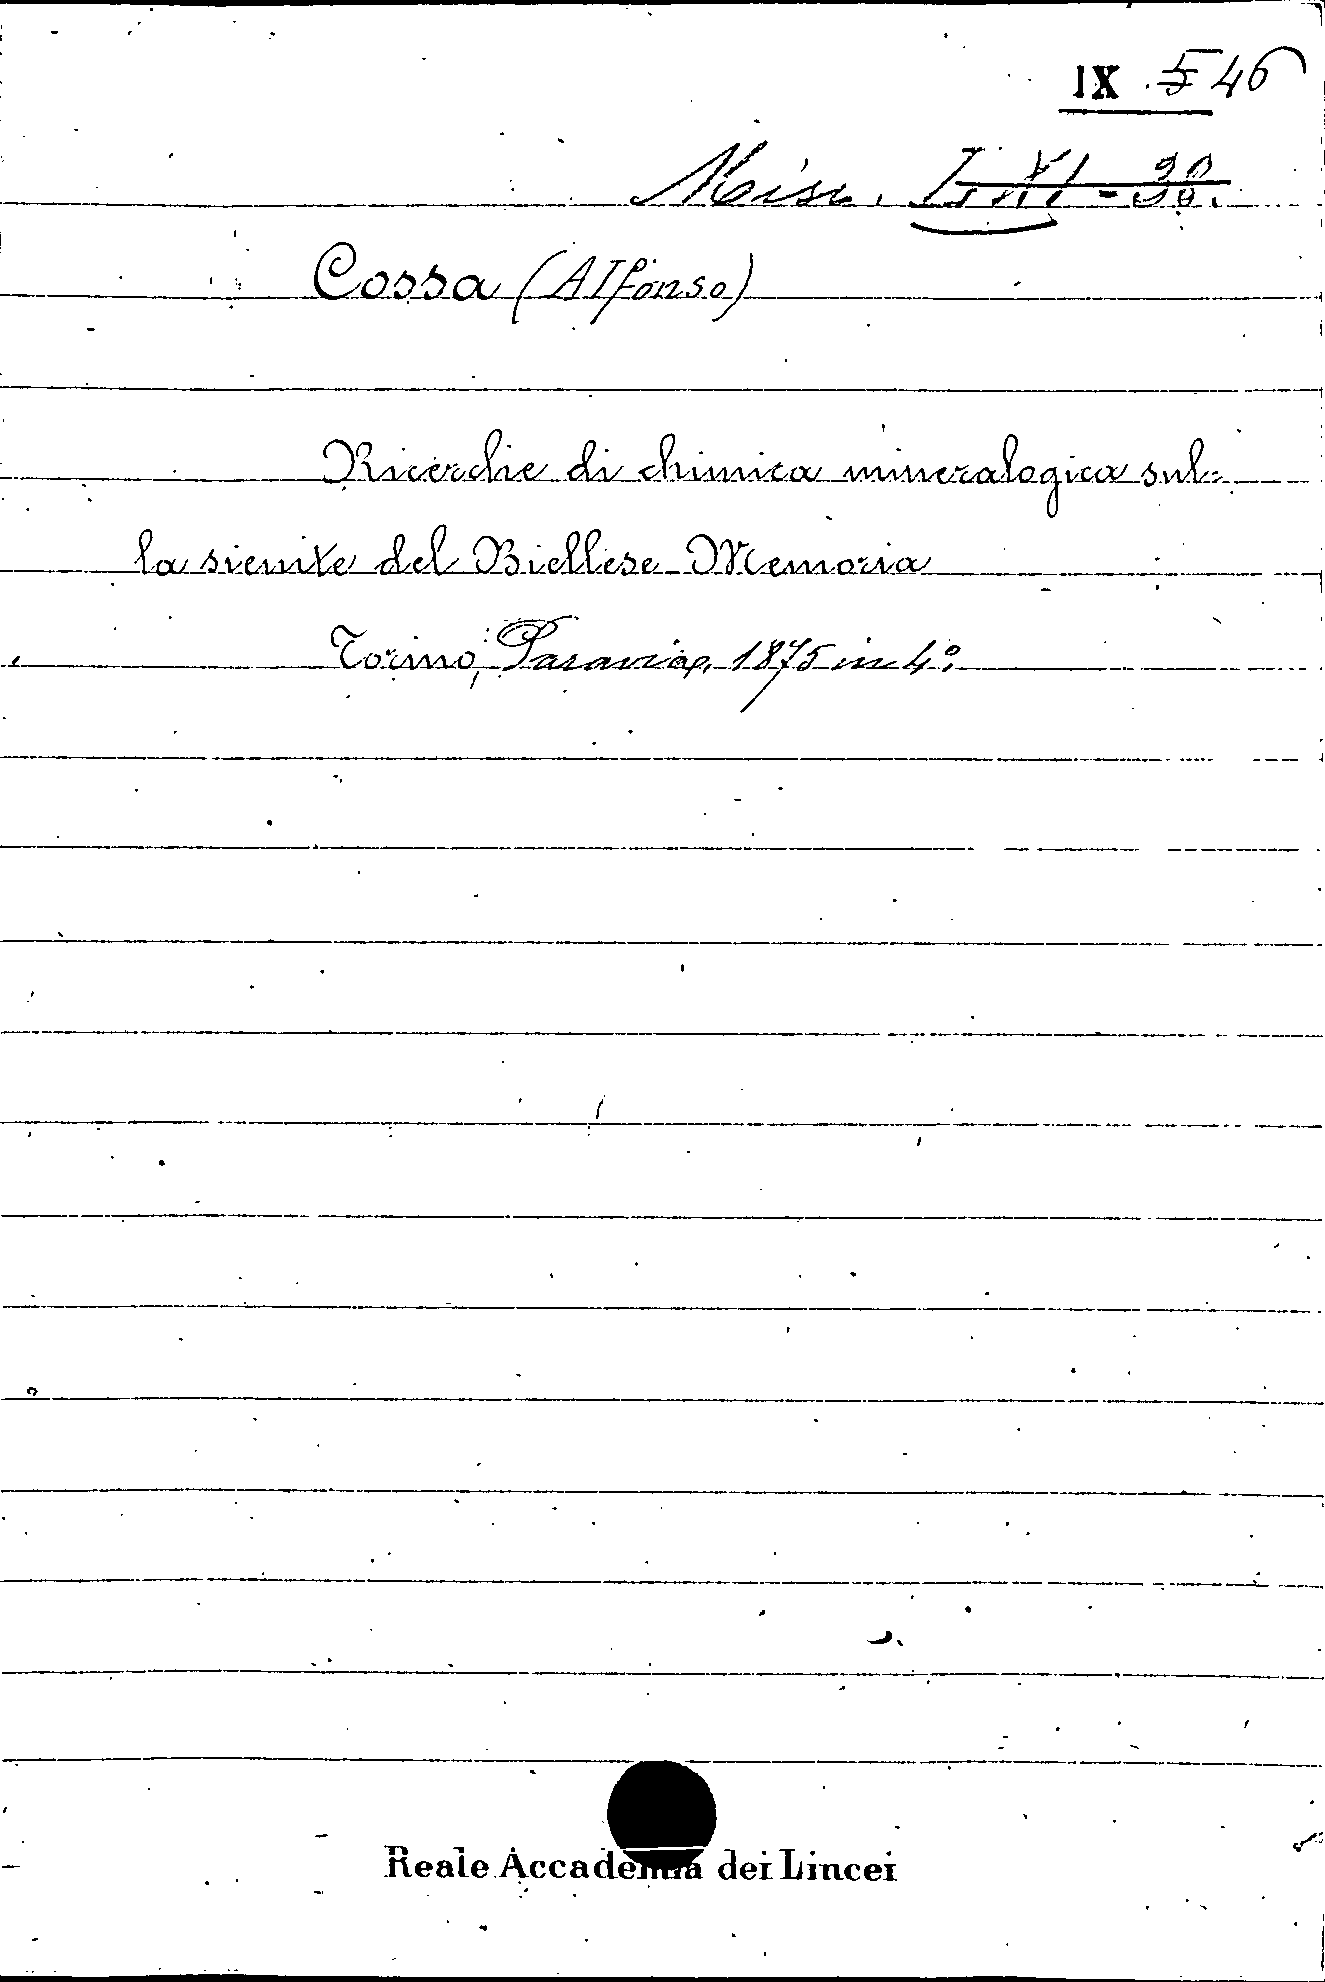 IX 5 46
Misc. I. XI - 30.
Cossa (Alfonso)
Ricerche di chimica mineralogica sul=
la sienite del Biellese - Memoria
Torino, Paravia, 1875 in 4°
Reale Accademia dei Lincei